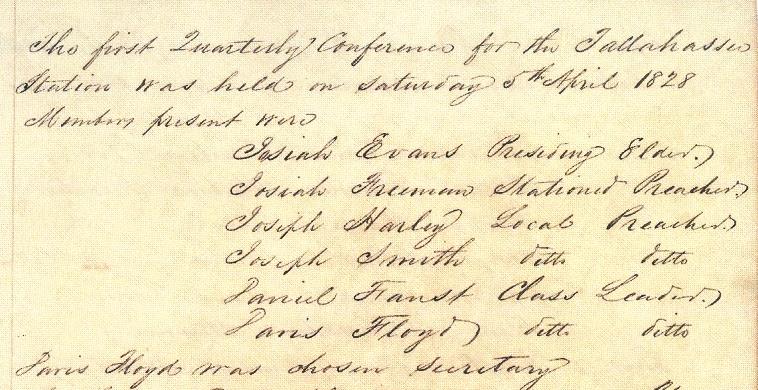 The first Quarterly Conference for the Tallahassee
Station was held on saturday 5th April 1828
Members present were
Josiah Evans Presiding Elder.
Josiah Freeman Stationed Preacher.
Joseph Harley Local Preacher.
Joseph Smith ditto ditto
Daniel Faust Class Leader.
Davis Floyd ditto ditto
Davis Floyd was chosen secretary